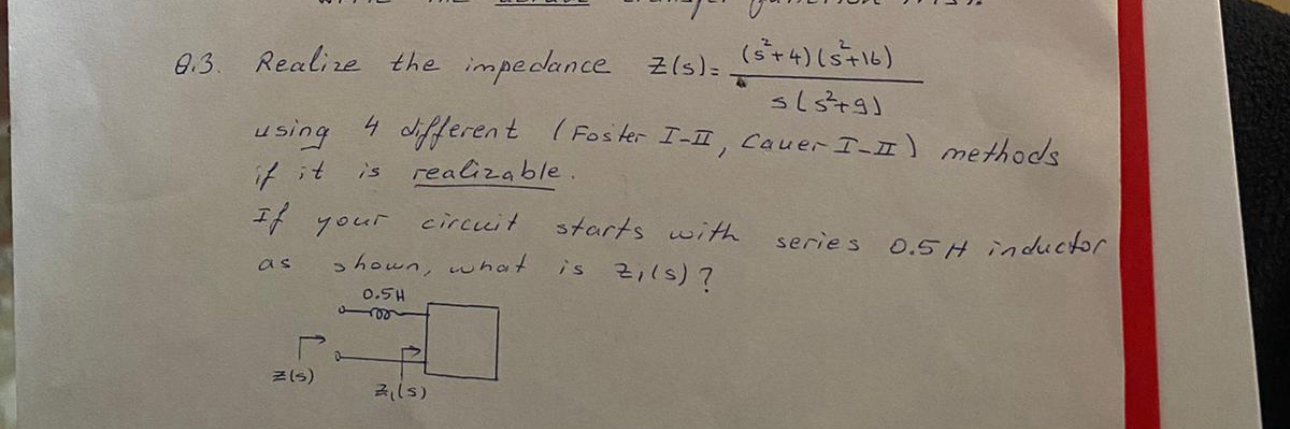 Q.3. Realize the impedance Z(s)= (s²+4)(s²+16) / s(s²+9)
using 4 different (Foster I-II, Cauer I-II) methods
if it is realizable.
If your circuit starts with series 0.5 H inductor
as shown, what is Z₁(s)?
0.5H
Z(s)
Z₁(s)